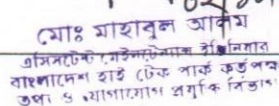 মোঃ মাহাবুল আলম
এসিসট্যান্ট মেইনটেন্যান্স ইঞ্জিনিয়ার
বাংলাদেশ হাই টেক পার্ক কর্তৃপক্ষ
তথ্য ও যোগাযোগ প্রযুক্তি বিভাগ